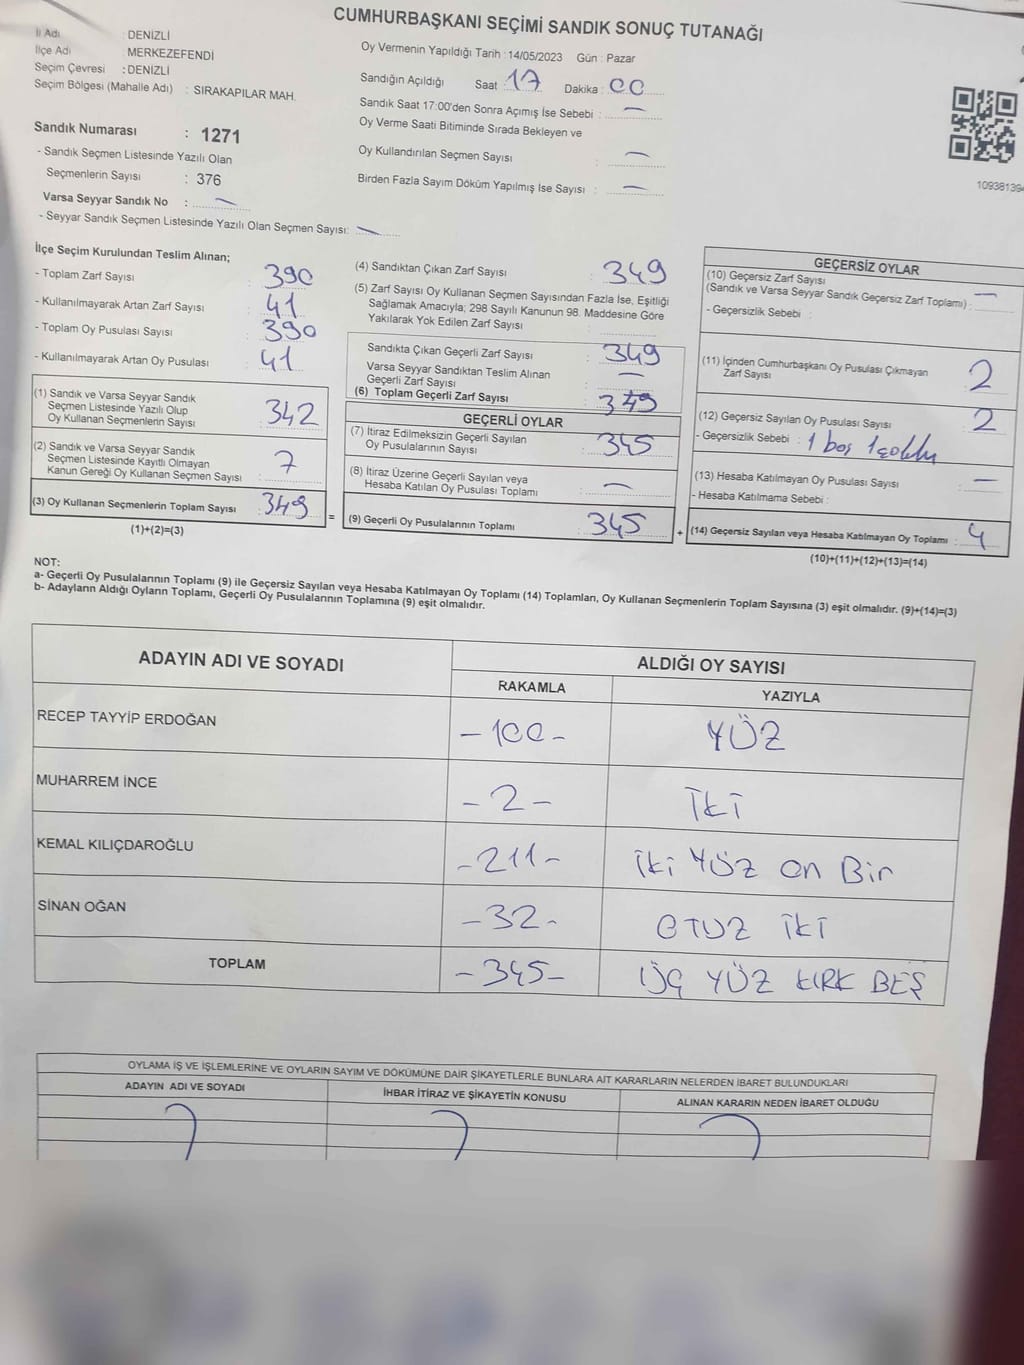 CUMHURBAŞKANI SEÇİMİ SANDIK SONUÇ TUTANAĞI
İl Adı : DENİZLİ
İlçe Adı : MERKEZEFENDİ
Seçim Çevresi : DENİZLİ
Seçim Bölgesi (Mahalle Adı) : SIRAKAPILAR MAH.
Sandık Numarası : 1271
- Sandık Seçmen Listesinde Yazılı Olan
Seçmenlerin Sayısı : 376
Varsa Seyyar Sandık No : —
- Seyyar Sandık Seçmen Listesinde Yazılı Olan Seçmen Sayısı: —
Oy Vermenin Yapıldığı Tarih : 14/05/2023 Gün : Pazar
Sandığın Açıldığı Saat : 17 Dakika : 00
Sandık Saat 17:00'den Sonra Açımış İse Sebebi : —
Oy Verme Saati Bitiminde Sırada Bekleyen ve
Oy Kullandırılan Seçmen Sayısı : —
Birden Fazla Sayım Döküm Yapılmış İse Sayısı : —
10938139
İlçe Seçim Kurulundan Teslim Alınan;
- Toplam Zarf Sayısı : 390
- Kullanılmayarak Artan Zarf Sayısı : 41
- Toplam Oy Pusulası Sayısı : 390
- Kullanılmayarak Artan Oy Pusulası : 41
(1) Sandık ve Varsa Seyyar Sandık
Seçmen Listesinde Yazılı Olup
Oy Kullanan Seçmenlerin Sayısı : 342
(2) Sandık ve Varsa Seyyar Sandık
Seçmen Listesinde Kayıtlı Olmayan
Kanun Gereği Oy Kullanan Seçmen Sayısı : 7
(3) Oy Kullanan Seçmenlerin Toplam Sayısı : 349
(1)+(2)=(3)
=
(4) Sandıktan Çıkan Zarf Sayısı : 349
(5) Zarf Sayısı Oy Kullanan Seçmen Sayısından Fazla İse, Eşitliği
Sağlamak Amacıyla; 298 Sayılı Kanunun 98. Maddesine Göre
Yakılarak Yok Edilen Zarf Sayısı :
Sandıkta Çıkan Geçerli Zarf Sayısı : 349
Varsa Seyyar Sandıktan Teslim Alınan
Geçerli Zarf Sayısı : —
(6) Toplam Geçerli Zarf Sayısı : 349
GEÇERLİ OYLAR
(7) İtiraz Edilmeksizin Geçerli Sayılan
Oy Pusulalarının Sayısı : 345
(8) İtiraz Üzerine Geçerli Sayılan veya
Hesaba Katılan Oy Pusulası Toplamı : —
(9) Geçerli Oy Pusulalarının Toplamı : 345
+
GEÇERSİZ OYLAR
(10) Geçersiz Zarf Sayısı
(Sandık ve Varsa Seyyar Sandık Geçersiz Zarf Toplamı) : —
- Geçersizlik Sebebi :
(11) İçinden Cumhurbaşkanı Oy Pusulası Çıkmayan
Zarf Sayısı : 2
(12) Geçersiz Sayılan Oy Pusulası Sayısı : 2
- Geçersizlik Sebebi : 1 boş 1 çoklu
(13) Hesaba Katılmayan Oy Pusulası Sayısı : —
- Hesaba Katılmama Sebebi :
(14) Geçersiz Sayılan veya Hesaba Katılmayan Oy Toplamı : 4
(10)+(11)+(12)+(13)=(14)
NOT:
a- Geçerli Oy Pusulalarının Toplamı (9) ile Geçersiz Sayılan veya Hesaba Katılmayan Oy Toplamı (14) Toplamları, Oy Kullanan Seçmenlerin Toplam Sayısına (3) eşit olmalıdır. (9)+(14)=(3)
b- Adayların Aldığı Oyların Toplamı, Geçerli Oy Pusulalarının Toplamına (9) eşit olmalıdır.
ADAYIN ADI VE SOYADI ALDIĞI OY SAYISI
RAKAMLA YAZIYLA
RECEP TAYYİP ERDOĞAN -100- YÜZ
MUHARREM İNCE -2- İKİ
KEMAL KILIÇDAROĞLU -211- İki YÜZ on Bir
SİNAN OĞAN -32- OTUZ İKİ
TOPLAM -345- ÜÇ YÜZ KIRK BEŞ
OYLAMA İŞ VE İŞLEMLERİNE VE OYLARIN SAYIM VE DÖKÜMÜNE DAİR ŞİKAYETLERLE BUNLARA AİT KARARLARIN NELERDEN İBARET BULUNDUKLARI
ADAYIN ADI VE SOYADI İHBAR İTİRAZ VE ŞİKAYETİN KONUSU ALINAN KARARIN NEDEN İBARET OLDUĞU